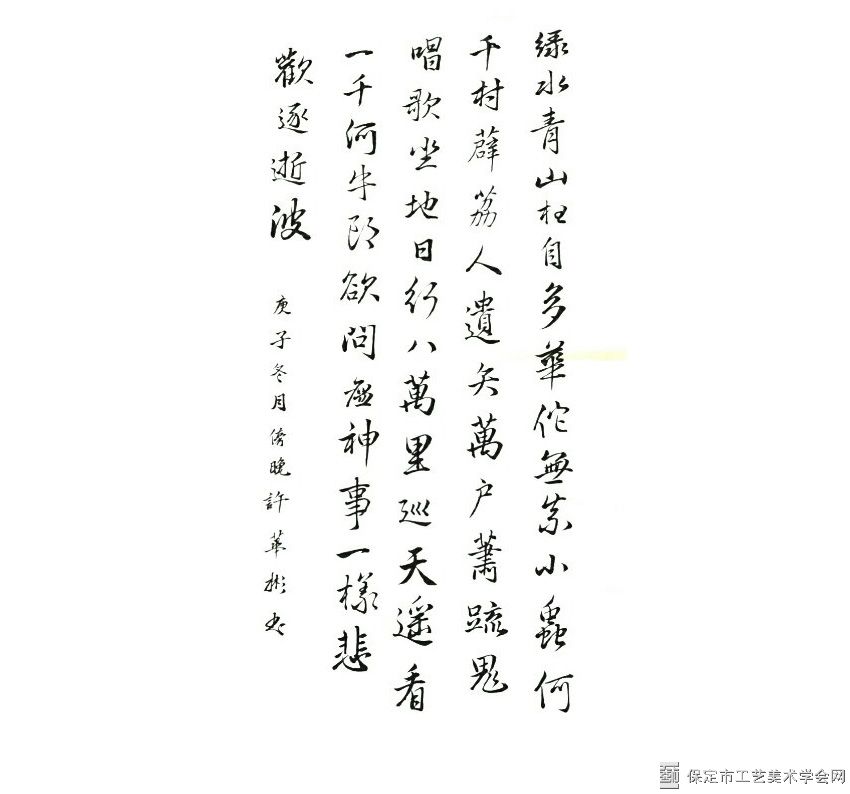 綠水青山枉自多華佗無奈小蟲何
千村薜荔人遺矢萬户蕭踈鬼
唱歌坐地日行八萬里巡天遥看
一千河牛郎欲問瘟神事一樣悲
歡逐逝波
庚子冬月傍晚許華彬书
保定市工艺美术学会网